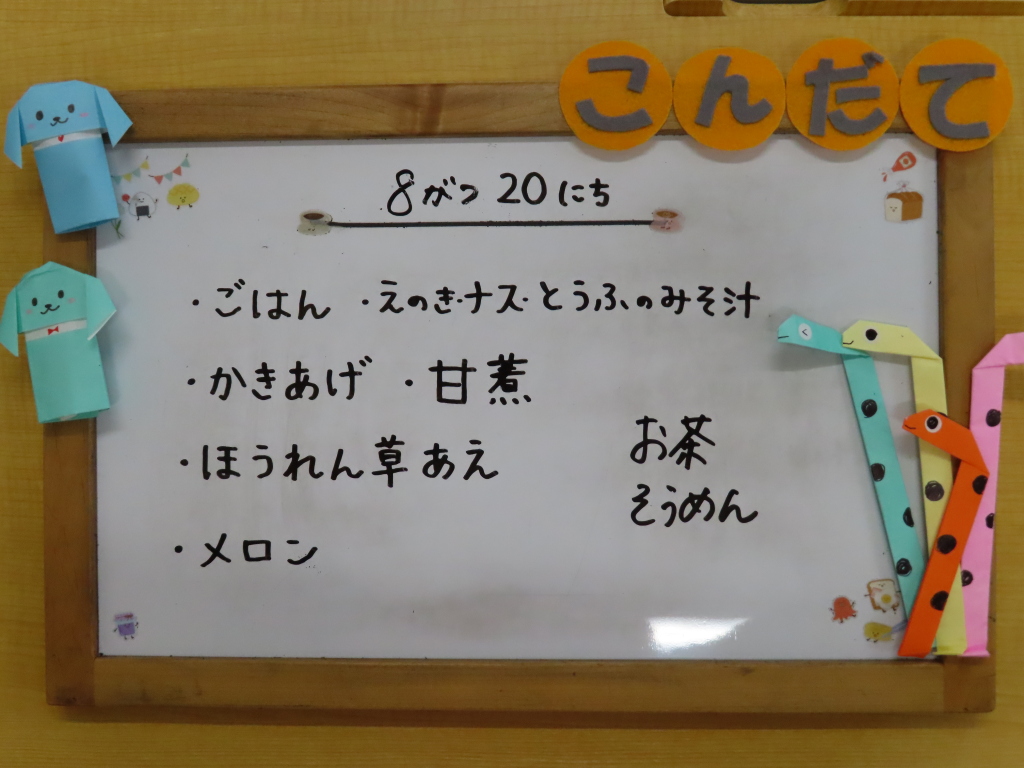 こんだて
8がつ20にち
・ごはん ・えのき・ナス・とうふのみそ汁
・かきあげ ・甘煮
・ほうれん草あえ
お茶
そうめん
・メロン